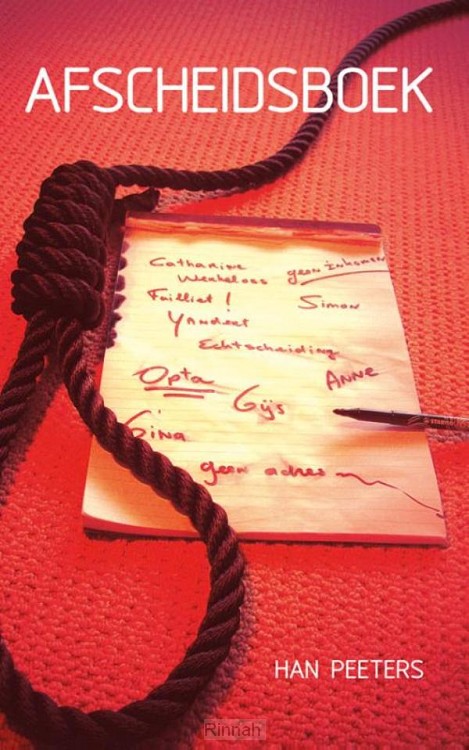 AFSCHEIDSBOEK
Catharine
Werkeloos geen inkomen
Failliet ! Simon
Echtscheiding
Opta Gijs ANNE
Gina
geen adres
HAN PEETERS
Rinnah